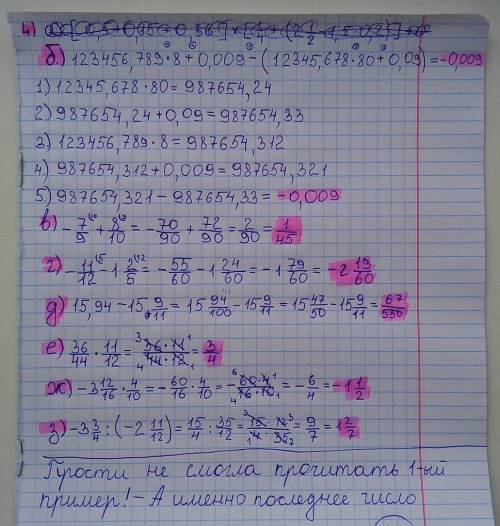 б) 123456,789·8+0,009-(12345,678·80+0,09)=-0,009
1) 12345,678·80=987654,24
2) 987654,24+0,09=987654,33
3) 123456,789·8=987654,312
4) 987654,312+0,009=987654,321
5) 987654,321-987654,33=-0,009
в) -7/9+8/10=-70/90+72/90=2/90=1/45
г) -11/12-1 2/5=-55/60-1 24/60=-1 79/60=-2 19/60
д) 15,94-15 9/11=15 94/100-15 9/11=15 47/50-15 9/11=67/550
е) 36/44·11/12=36·11/44·12=3/4
ж) -3 12/16·4/10=-60/16·4/10=-60·4/16·10=-6/4=-1 1/2
з) -3 3/4:(-2 11/12)=15/4:35/12=15·12/4·35=9/7=1 2/7
Прости не смогла прочитать 1-ый
пример!-А именно последнее число